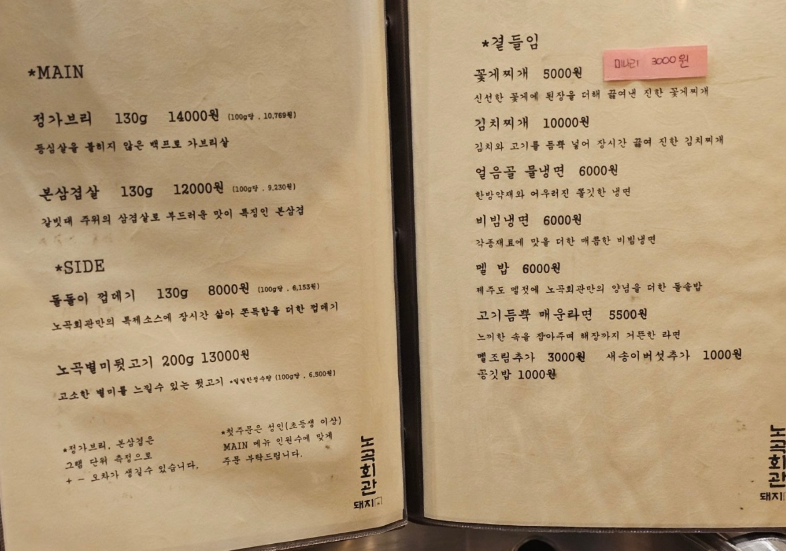 *MAIN
정가브리 130g 14000원 (100g당 , 10,769원)
등심살을 붙히지 않은 백프로 가브리살
본삼겹살 130g 12000원 (100g당 , 9,230원)
갈빗대 주위의 삼겹살로 부드러운 맛이 특징인 본삼겹
*SIDE
돌돌이 껍데기 130g 8000원 (100g당 , 6,153원)
노곡회관만의 특제소스에 장시간 삶아 쫀득함을 더한 껍데기
노곡별미뒷고기 200g 13000원
고소한 별미를 느낄수 있는 뒷고기 *일일한정수량 (100g당 , 6,500원)
*정가브리, 본삼겹은
그램 단위 측정으로
+ - 오차가 생길수 있습니다.
*첫주문은 성인(초등생 이상)
MAIN 메뉴 인원수에 맞게
주문 부탁드립니다.
노곡회관
돼지
*곁들임
꽃게찌개 5000원
미나리 3000원
신선한 꽃게에 된장을 더해 끓여낸 진한 꽃게찌개
김치찌개 10000원
김치와 고기를 듬뿍 넣어 장시간 끓여 진한 김치찌개
얼음골 물냉면 6000원
한방약재와 어우러진 쫄깃한 냉면
비빔냉면 6000원
각종재료에 맛을 더한 매콤한 비빔냉면
멜 밥 6000원
제주도 멜젓에 노곡회관만의 양념을 더한 돌솥밥
고기듬뿍 매운라면 5500원
느끼한 속을 잡아주며 해장까지 거뜬한 라면
멜조림추가 3000원 새송이버섯추가 1000원
공깃밥 1000원
노곡회관
돼지